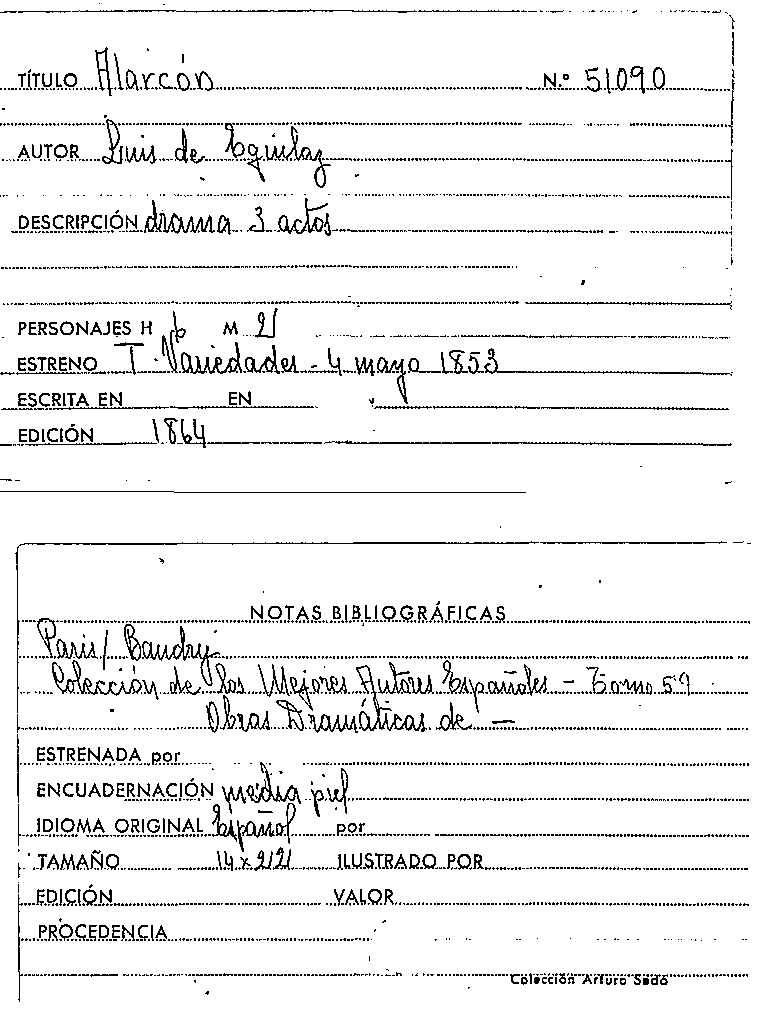 TÍTULO Alarcón N.º 51090
AUTOR Luis de Eguilaz
DESCRIPCIÓN drama 3 actos
PERSONAJES H 6 M 2
ESTRENO T. Variedades - 4 mayo 1853
ESCRITA EN EN
EDICIÓN 1864
NOTAS BIBLIOGRÁFICAS
Paris / Baudry
Colección de los Mejores Autores Españoles - Tomo 59
Obras Dramáticas de —
ESTRENADA por
ENCUADERNACIÓN media piel
IDIOMA ORIGINAL Español por
TAMAÑO 14 x 22 ILUSTRADO POR
EDICIÓN VALOR
PROCEDENCIA
Colección Arturo Sedó